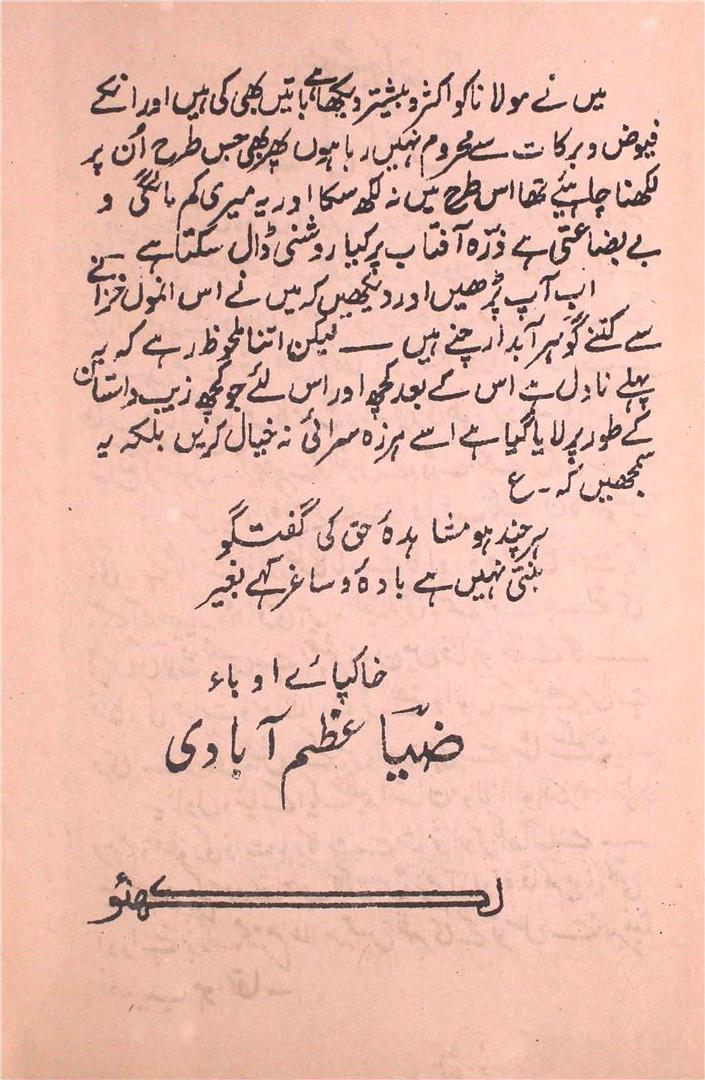 میں نے مولانا کو اکثر و بیشتر دیکھا ہے باتیں بھی کی ہیں اور انکے
فیوض و برکات سے محروم نہیں رہا ہوں پھر بھی جس طرح اُن پر
لکھنا چاہیئے تھا اس طرح میں نہ لکھ سکا اور یہ میری کم مائگی و
بے بضاعتی ہے ذرّہ آفتاب پر کیا روشنی ڈال سکتا ہے
اب آپ پڑھیں اور دیکھیں کہ میں نے اس انمول خزانے
سے کتنے گوہر آبدار چنے ہیں ـــــ لیکن اتنا ملحوظ رہے کہ یہ
پہلے ناول ہے اس کے بعد کچھ اور اس لئے جو کچھ زیب داستان
کے طور پر لایا گیا ہے اسے ہرزہ سرائی نہ خیال کریں بلکہ یہ
سمجھیں کہ ۔ ع
ہر چند ہو مشاہدۂ حق کی گفتگو
بنتی نہیں ہے بادۂ و ساغر کہے بغیر
خاکپائے اوباء
ضیا عظیم آبادی
لکھنؤ